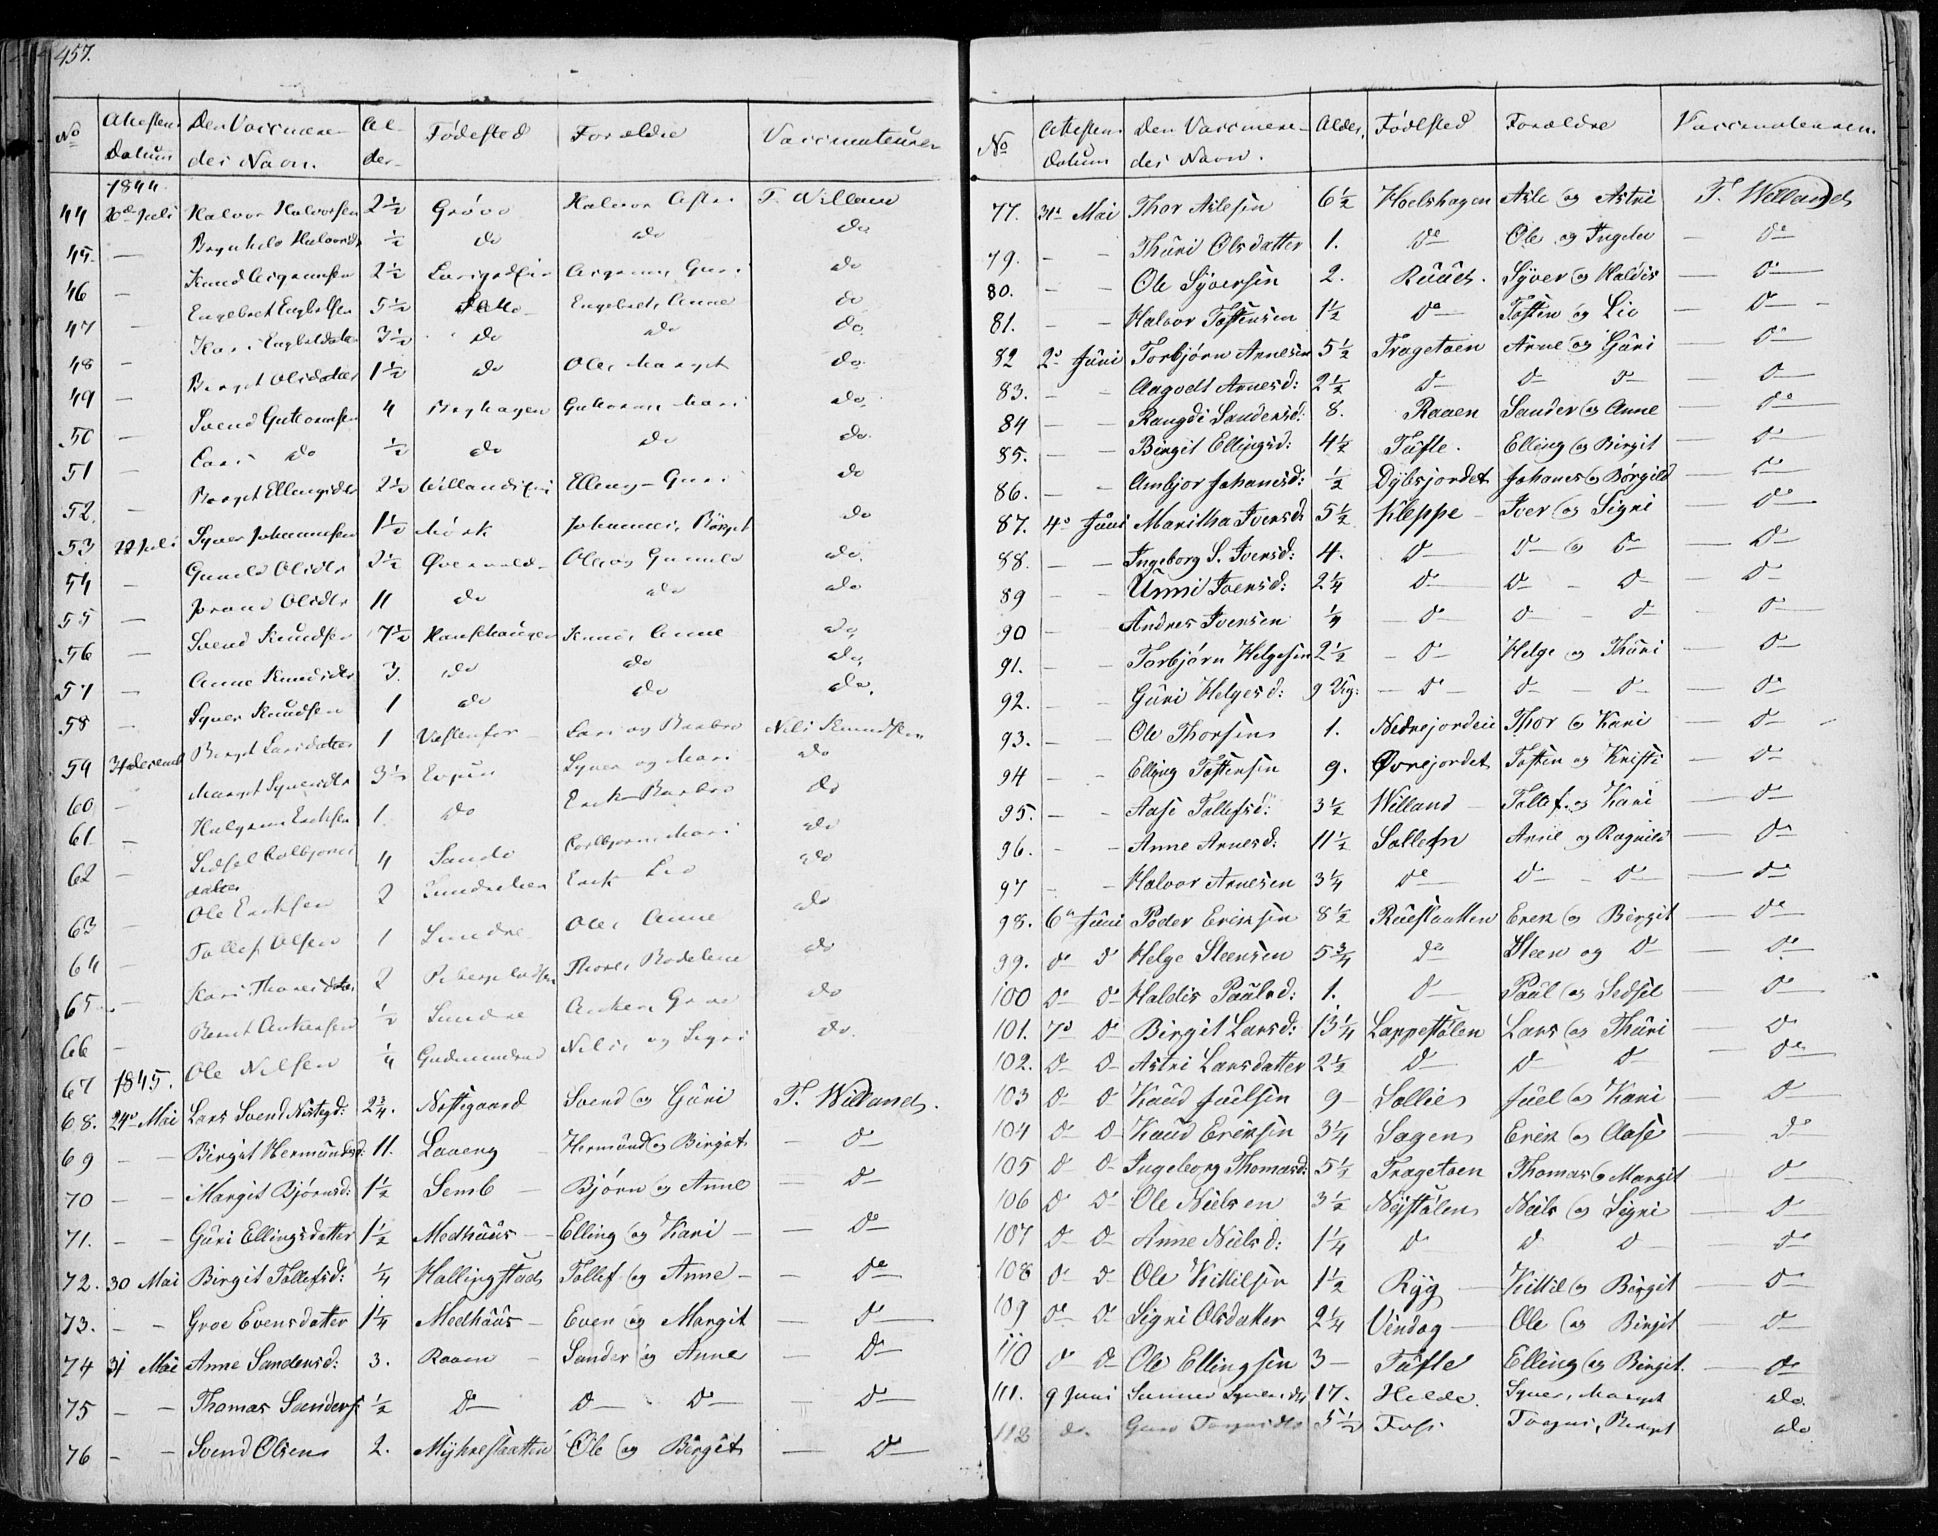 457.
No Attestens Datum Den Vaccineredes Navn. Alder Fødested Forældre Vaccinateuren
1844
44 20de Juli Halvor Halvorsen 2½ Grøvo Halvor Astri T. Willand
45. — Brynhild Halvorsdr ½ do do do
46 — Knud Asgrimsen 2½ Asgrim, Guri do
47 — Engebret Engbretsen 5½ Engebret, Anne do
48 — Kari Engbretsdater 3½ do do do
49 — Birget Olsdatter 1½ do Ole, Marget do
50 — Svend Guttormsen 4 Guttorm, Mari do
51 — Cari do ½ do do do
52. — Birget Ellingsdtr 2½ Willandseie Elling – Guri do
53 22 Juli Syver Johannesen 1½ Mørk Johannes, Börget do
54 — Gunild Olsdtr 2½ Ole og Gunild do
55 — Jorand Olsdtr 11 do do do
56 — Svend Knudsen 7½ Knud, Anne do
57 — Anne Knudsdtr 3. do do do
58 — Syver Knudsen 1 do do do.
59 Birget Larsdatter 1 Lars og Barbro Nils Knudsen
60 — Marget Syversdtr 3½ Syver og Mari do
61 — Halgrim Ericksen 1. do Erick Barbro do
62 — Sidsel Colbjørnsdatter 4 Sando Colbjørn, Mari do
63 — Ole Ericksen 2 Erick Liv do
64 — Tollef Olsen 1 Sundre Ole, Anne do
65 — Kari Thoresdatter 2 Thore, Bodelene do
66 — Bernt Ankersen ½ Sundre Anker, Groe do
67 Ole Nilsen ¼ Nils og Sigri do.
1845.
68. 24de Mai Lars Svend Nøstegd: 2¾. Nøstegaard Svend og Guri T. Willand.
69 — — Birgit Hermundsd: 11. Laaeng Hermund og Birgit — do
70 — — Margit Bjørnsd: 1½ Semb — Bjørn og Anne — do
71. — — Guri Ellingsdatter 1½ Medhuus — Elling og Kari — — do
72. 30 Mai Birgit Tollefsd: ¼ Hallingstad Tollef og Anne — — do
73. — — Groe Evensdatter 1¼ Medhuus — Even og Margit — do
74 31 Mai Anne Sandersd: 3. Raaen — Sander og Anne — do
75 — — Thomas Sanders ½ do do do — do
76 — — Svend Olsen 2. Myhrestaatten Ole og Birgit — do
No Attestens Datum Den Vaccineredes Navn. Alder. Fødested Forældre Vaccinateuren.
77. 31te Mai Thor Aslesen 6½ Hoelshagen Asle og Astri T. Willand
79. — — Thuri Olsdatter 1. do Ole og Ingeler — do
80. — — Ole Syversen 2. Ruud. Syver og Haldis — do
81. — — Halvor Tostensen 1½ do Tosten og Liv — do
82 2de Juni Torbjørn Arnesen 5½ Trageteen Arne og Guri — do
83. — — Aagodt Arnesd: 2½ do do do — do
84 — — Rangdi Sandersd: 8. Raaen Sander og Anne — do
85. — — Birgit Ellingsd: 4½ Tufte. Elling og Birgit — do
86. — — Ambjør Johanesd: ½ Dybsjordet Johanes og Børgild — do
87. 4de Juni Maritha Iversd: 5½ Kleppe Iver og Sigri — do
88. — — Ingeborg S. Iversd: 4. do do og do — do
89 — — Unni Iversd: 2¼ do do — do do
90 — Andres Iversen ¼ — do do — do — do
91. — Torbjørn Helgesen 2½ — do Helge og Thuri — do
92. — Guri Helgesd: 9 Ug: — do — do — do — do
93. — — Ole Thorsen 1. Nedrejordet Thor og Kari — do
94 — — Elling Tostensen 9. Øvrejordet Tosten og Kristi — do
95. — — Aase Tollefsd: 3½ Willand Tollef og Kari — do
96. — — Anne Arnesd: 11½ Arne og Ragnild — do
97 — — Halvor Arnesen 3¼ do do — do — do
98. 6te Juni Peder Eriksen 8½ Ruestaatten Erik og Birgit — do
99. do do Helge Steensen 5¾ do Steen og do — do
100 do do Haldis Paulsd: 1. do Paul og Sedsel — do
101. 7de do Birgit Larsd: 13¼ Lappestølen Lars og Thuri do
102. do do Astri Larsdatter 2½ do do do — do
103 do do Knud Juelsen 9 — Sollie Juel og Kari — do
104 do do Knud Eriksen 3¼ Sagen Erik og Aase — do
105 do do Ingeborg Thomasd: 5½ Trageteen Thomas og Margit — do
106 do do Ole Nielsen 3½ Nystølen Niels og Sigri — do
107 do do Anne Nielsd: 1¼ do do do — do
108 do do Ole Kittilsen 1½ Ryg — Kittil og Birgit — do
109 do do Sigri Olsdatter 2¼ Vindog — Ole og Birgit — do
110 do do Ole Ellingsen 3 — Tufte Elling og Birgit. — do
111. 9 Juni 17. Helde. Syver, Marget do.
112 do. Guro Torgrisdtr 5½ Foss Torgri, Birget do